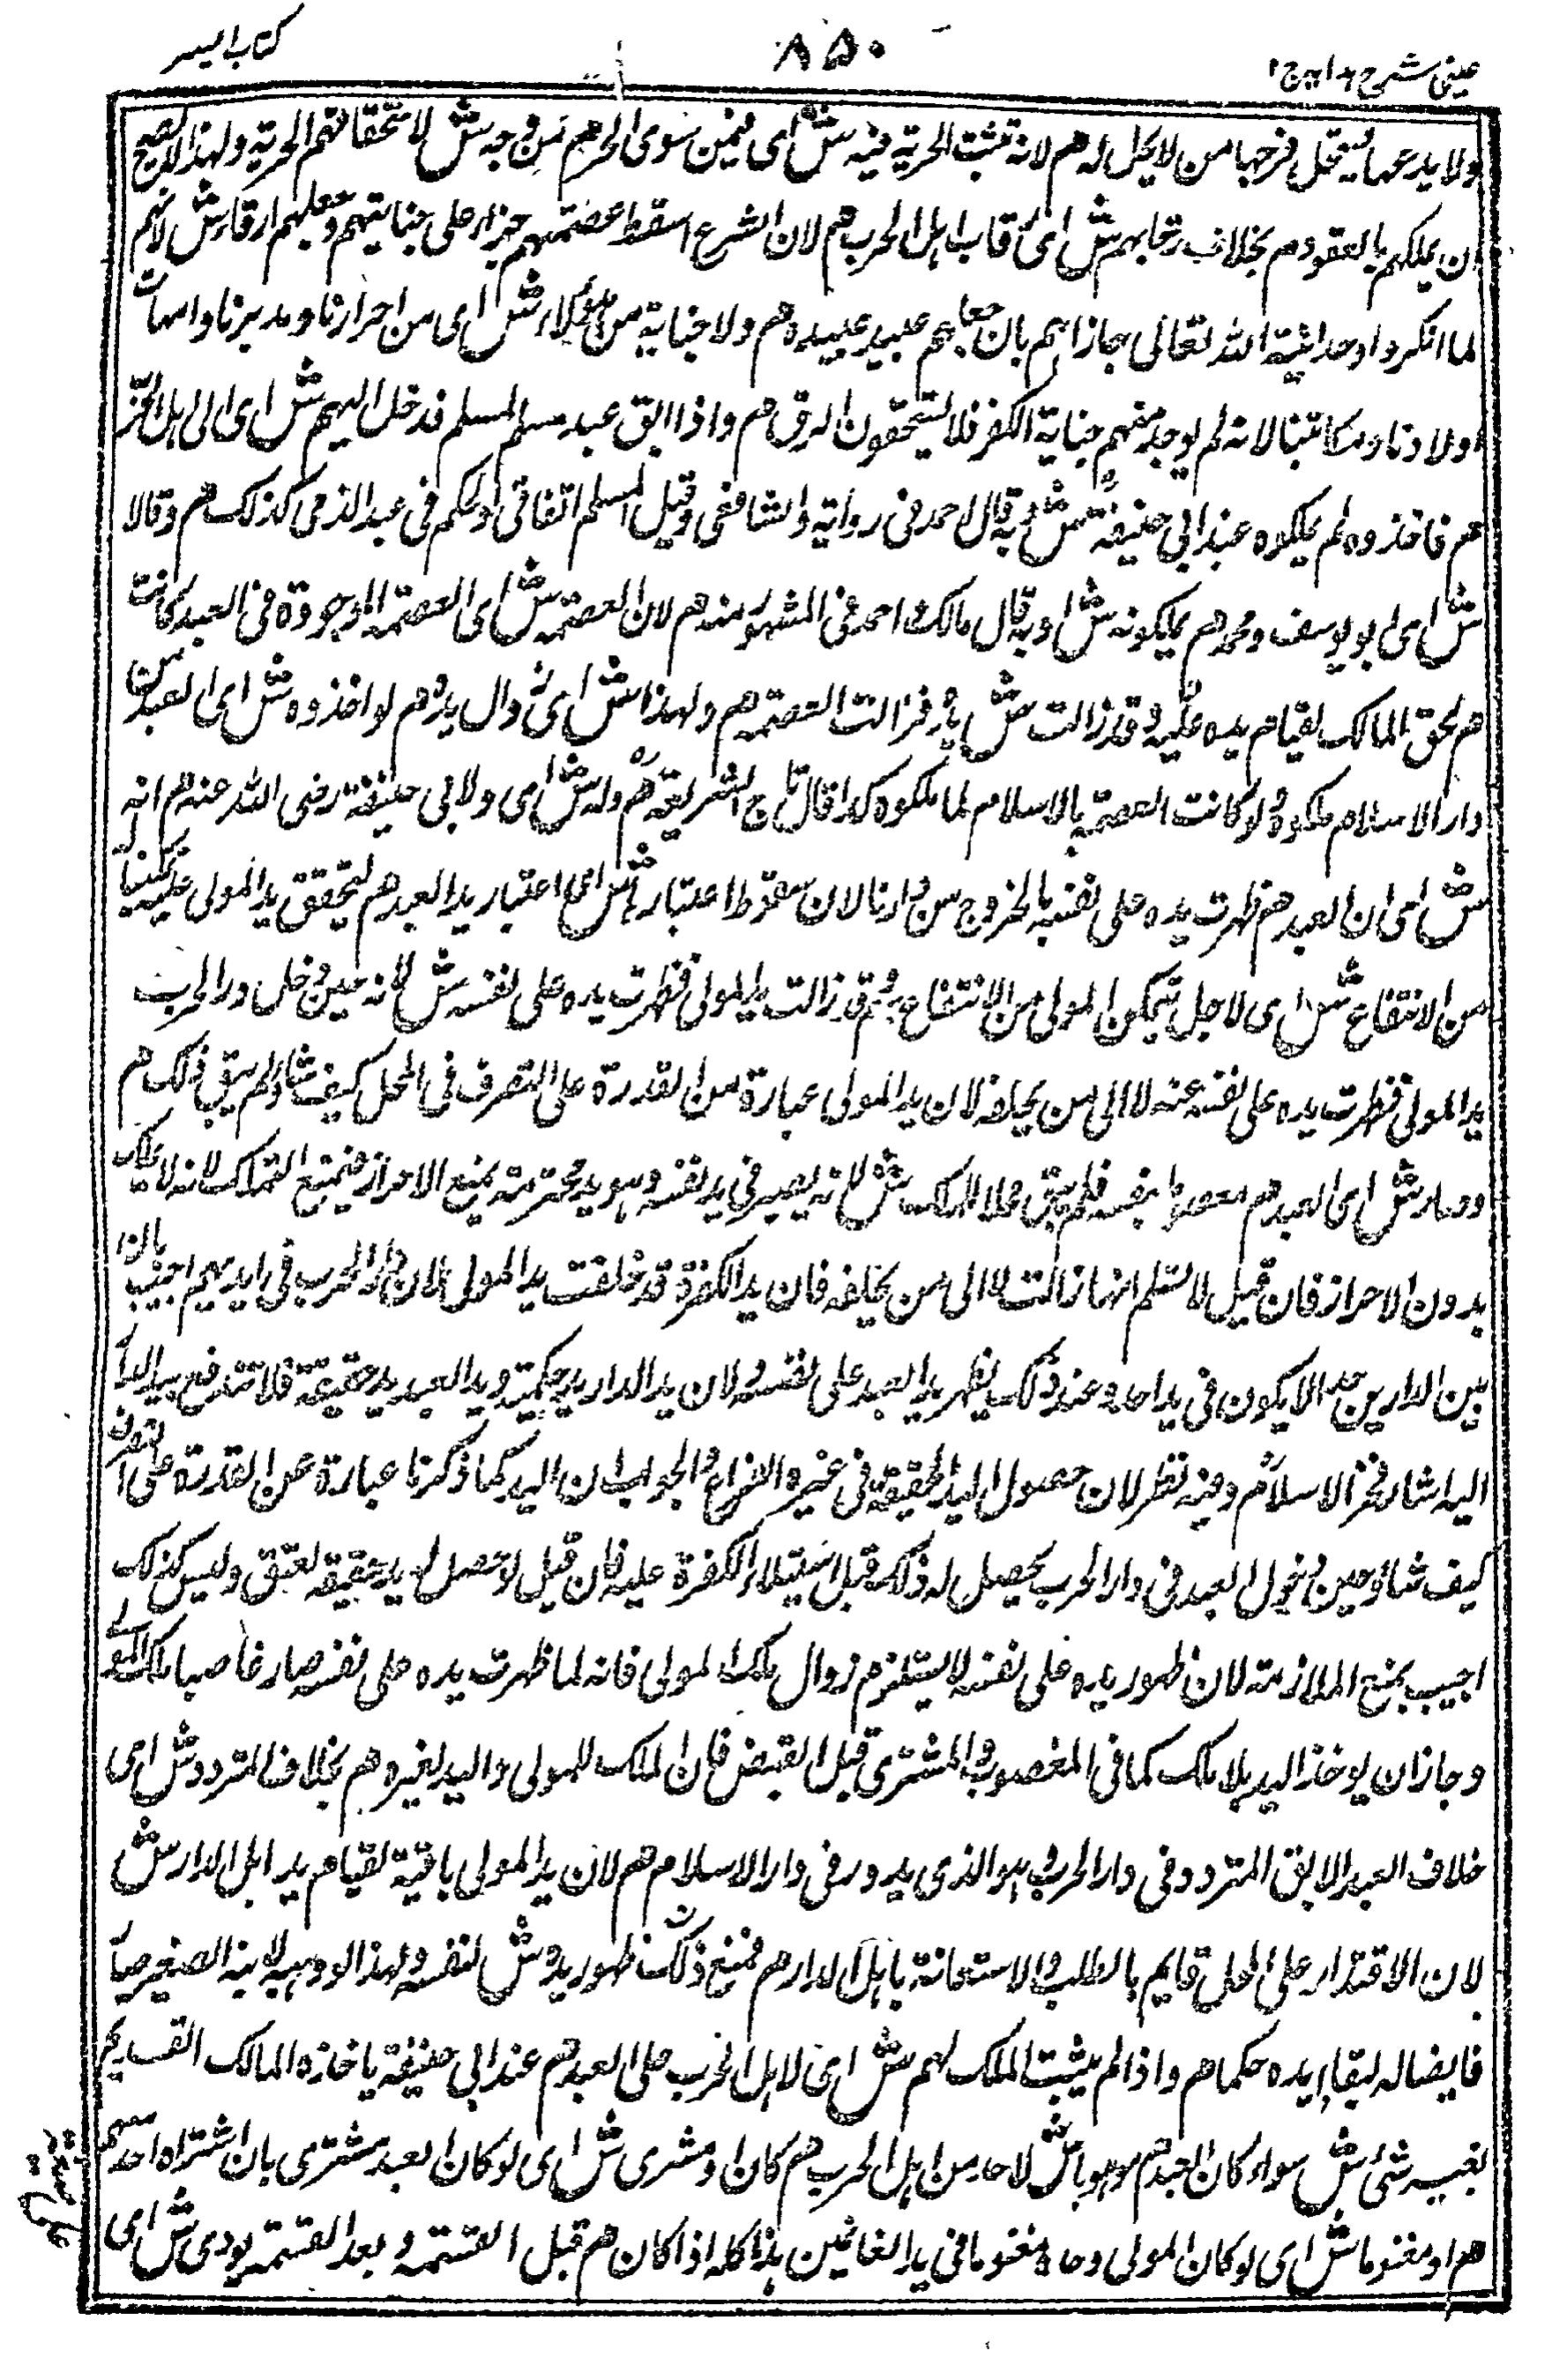 عینی شرح ہدایہ ج ۲
۸۵۰
کتاب السیر
ولا يدعها ليستحل فرجها من لا يحل له هم لانه تثبت الحرية فيه ش اى فيمن سوى الحر هم من وجه ش لاستحقاقهم الحرية ولهذا لا يصح
ان يملكهم بالعقود هم بخلاف رقابهم ش اى رقاب اہل الحرب هم لان الشرع اسقط عصمتهم جزاء على جنايتهم وجعلهم ارقاء ش لانهم
لما انكروا وحدانية الله تعالى جازاهم بان جعلهم عبيد عبيده هم ولا جناية من ہؤلاء ش اى من احرارنا ومدبرنا وامهات
اولادنا ومكاتبنا لانه لم يوجد منهم جناية الكفر فلا يستحقون الرق هم واذا ابق عبد مسلم لمسلم فدخل اليهم ش اى الى اہل الحرب
هم فاخذوه لم يملكوه عند ابى حنيفة ش وبه قال احمد فى رواية والشافعى وقيل المسلم اتفاقى والحكم فى عبد الذمى كذلك هم وقالا
ش اى ابو يوسف ومحمد هم يملكونه ش وبه قال مالك واحمد فى المشهور عنه هم لان العصمة ش اى العصمة الموجودة فى العبد كانت
هم لحق المالك لقيام يده عليه وقد زالت ش يده فزالت العصمة هم ولهذا ش اى لزوال يده هم لو اخذوه ش اى العبد من
دار الاسلام ملكوه ولو كانت العصمة بالاسلام لما ملكوه كذا قال تاج الشريعة هم وله ش اى ولابى حنيفة رضى الله عنه هم انه
ش اى ان العبد هم ظهرت يده على نفسه بالخروج من دارنا لان سقوط اعتباره ش اى اعتبار يد العبد هم لتحقق يد المولى عليه تمكينا له
من الانتفاع ش اى لاجل تمكن المولى من الانتفاع به هم وقد زالت يد المولى فظهرت يده على نفسه ش لانه حين دخل دار الحرب
يد المولى فظهرت يده على نفسه عنه لا الى من يخلفه لان يد المولى عبارة من القدرة على التصرف فى المحل كيف شاء ولم يبق ذلك هم
وصار ش اى العبد هم معصوما بنفسه فلم يبق محلا للملك ش لانه يصير فى يد نفسه وہو يد محترمة يمنع الاحراز فيمنع التملك لانه لا يملك
بدون الاحراز فان قيل لا نسلم انها زالت لا الى من يخلفه فان يد الكفرة قد خلفت يد المولى لان دار الحرب فى ايديهم اجيب بان
بين الدارين حد الا يكون فى يد احد وعند ذلك يظهر يد العبد على نفسه ولان يد الدار يد حكمية ويد العبد يد حقيقة فلا تندفع بيد الدار
اليه اشار فخر الاسلام وفيه نظر لان حصول اليد الحقيقة فى حيز النزاع والجواب ان اليد كما ذكرنا عبارة عن القدرة على التصرف
كيف شاء وحين دخول العبد فى دار الحرب يحصل له ذلك قبل استيلاء الكفرة عليه فان قيل لو حصل له يد حقيقة لعتق وليس كذلك
اجيب بمنع الملازمة لان ظهور يده على نفسه لا يستلزم زوال ملك المولى فانه لما ظهرت يده على نفسه صار غاصبا ملك المولى
وجاز ان يوخذ اليد بلا ملك كما فى المغصوب والمشترى قبل القبض فان الملك للمولى واليد لغيره هم بخلاف المتردد ش اى
خلاف العبد الابق المتردد فى دار الحرب ہو الذى يدور فى دار الاسلام هم لان يد المولى باقية لقيام يد اہل الدار ش
لان الاقتدار على المحل قايم بالطلب والاستعانة باہل الدار هم فمنع ذلك ظهور يده ش لنفسه ولهذا لو وہبه لابنه الصغير صار
قابضا له لبقاء يده حكما هم واذا لم يثبت الملك لهم ش اى لاہل الحرب على العبد هم عند ابى حنيفة ياخذه المالك القديم
بغير شئ ش سواء كان العبد هم موہوبا ش لاحد من اہل الحرب هم كان او مشترى ش اى لو كان العبد مشترى بان اشتراه احد منهم
هم او مغنوما ش اى لو كان المولى وجده مغنوما فى يد الغانمين ہذا كله اذا كان هم قبل القسمة وبعد القسمة يودى ش اى